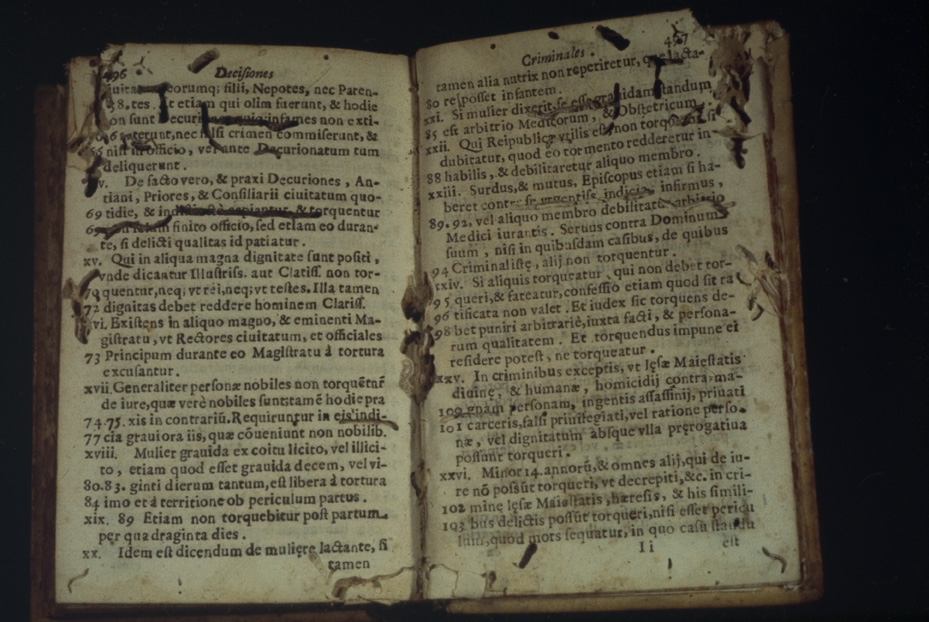 496 Decisiones
eorumq; filii, Nepotes, nec Paren-
tes. Et etiam qui olim fuerunt, & hodie
non sunt non exti-
terunt, nec nisi crimen commiserunt, &
officio, vel ante Decurionatum tum
deliquerunt.
v. De facto verò, & praxi Decuriones, An-
tiani, Priores, & Consiliarii ciuitatum quo-
69 tidie, & torquentur
finito officio, sed etiam eo duran-
te, si delicti qualitas id patiatur.
xv. Qui in aliqua magna dignitate sunt positi,
vnde dicantur Illustriss. aut Clariss. non tor-
quentur, neq; vt rei, neq; vt testes. Illa tamen
72 dignitas debet reddere hominem Clariss.
vi. Existens in aliquo magno, & eminenti Ma-
gistratu, vt Rectores ciuitatum, et officiales
73 Principum durante eo Magistratu à tortura
excusantur.
xvii. Generaliter personæ nobiles non torquẽtur
de iure, quæ verè nobiles sunt: tamẽ hodie pra
74.75. xis in contrariũ. Requiruntur in eis indi-
77 cia grauiora iis, quæ cõueniunt non nobilib.
xviii. Mulier grauida ex coitu licito, vel illici-
to, etiam quod esset grauida decem, vel vi-
80.83. ginti dierum tantum, est libera à tortura
84 imo et à territione ob periculum partus.
xix. 89 Etiam non torquebitur post partum
per quadraginta dies.
xx. Idem est dicendum de muliere lactante, si
tamen
Criminales. 497
tamen alia nutrix non reperiretur, quæ lacta-
80 re posset infantem.
xxi. Si mulier dixerit, se esse grauidam standum
85 est arbitrio Medicorum, & Obstetricum,
xxii. Qui Reipublicæ vtilis est, non torquetur, si
dubitatur, quod eo tormento redderetur in
88 habilis, & debilitaretur aliquo membro.
xxiii. Surdus, & mutus, Episcopus etiam si ha-
beret contra se vrgentiss. indicia, infirmus,
89. 92, vel aliquo membro debilitatus arbitrio
Medici iurantis. Seruus contra Dominum
suum, nisi in quibusdam casibus, de quibus
94 Criminalistę, alij non torquentur.
xxiv. Si aliquis torqueatur, qui non debet tor-
95 queri, & fateatur, confessio etiam quod sit ra
96 tificata non valet. Et iudex sic torquens de-
98 bet puniri arbitrariè, iuxta facti, & persona-
rum qualitatem. Et torquendus impune ei
residere potest, ne torqueatur.
xxv. In criminibus exceptis, vt lęsæ Maiestatis
diuinę, & humanæ, homicidij contra ma-
100 gnam personam, ingentis assassinij, priuati
101 carceris, falsi priuilegiati, vel ratione perso-
næ, vel dignitatum absque vlla prerogatiua
possunt torqueri.
xxvi. Minor 14. annorũ, & omnes alij, qui de iu-
re nõ possũt torqueri, vt decrepiti, &c. in cri-
102 mine lęsæ Maiestatis, hæresis, & his simili-
103 bus delictis possũt torqueri, nisi esset pericu
lum, quod mors sequatur, in quo casu standũ
Ii est